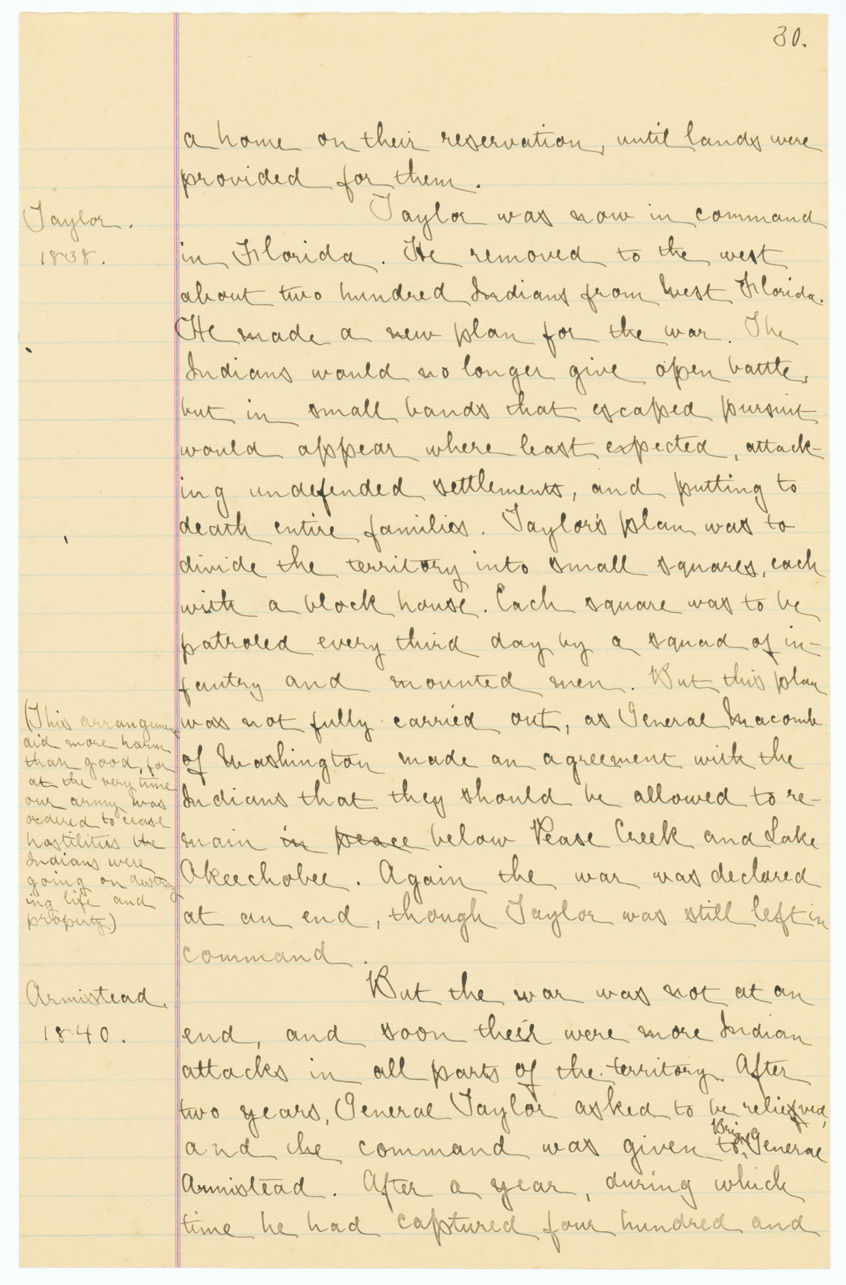 30.
a home on their reservation, until lands were
provided for them.
Taylor.
1838.
Taylor was now in command
in Florida. He removed to the west
about two hundred Indians from West Florida.
He made a new plan for the war. The
Indians would no longer give open battle,
but in small bands that escaped pursuit
would appear where least expected, attack-
ing undefended settlements, and putting to
death entire families. Taylor's plan was to
divide the territory into small squares, each
with a block house. Each square was to be
patroled every third day by a squad of in-
fantry and mounted men. But this plan
was not fully carried out, as General Macomb
of Washington made an agreement with the
Indians that they should be allowed to re-
main in peace below Pease Creek and Lake
Okeechobee. Again the war was declared
at an end, though Taylor was still left in
command.
(This arrangement
did more harm
than good, for
at the very time
our army was
ordered to cease
hostilities the
Indians were
going on destroy
ing life and
property)
Armistead.
1840.
But the war was not at an
end, and soon their were more Indian
attacks in all parts of the territory. After
two years, General Taylor asked to be relieved,
and the command was given to Brig General
Armistead. After a year, during which
time he had captured four hundred and